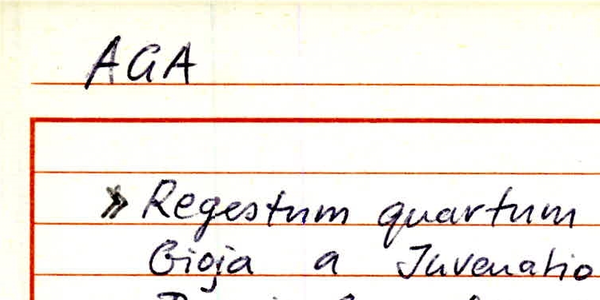 AGA
» Regestum quartum
Gioja a Juvenatio